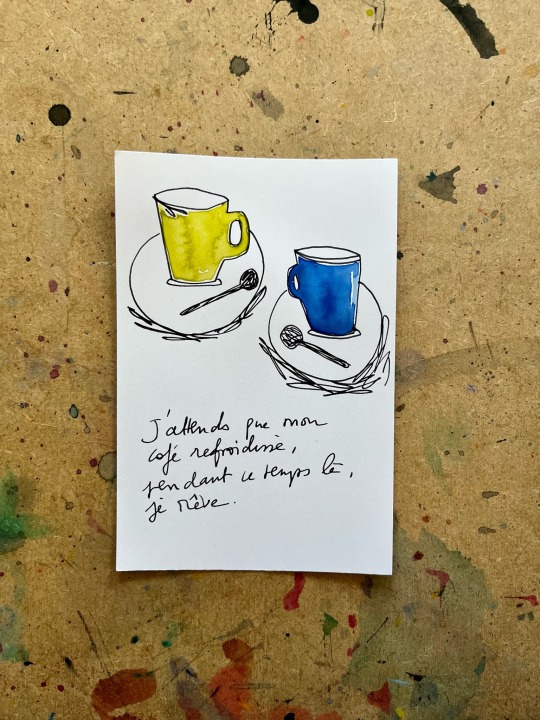 J'attends que mon
café refroidisse,
pendant ce temps là,
je rêve.